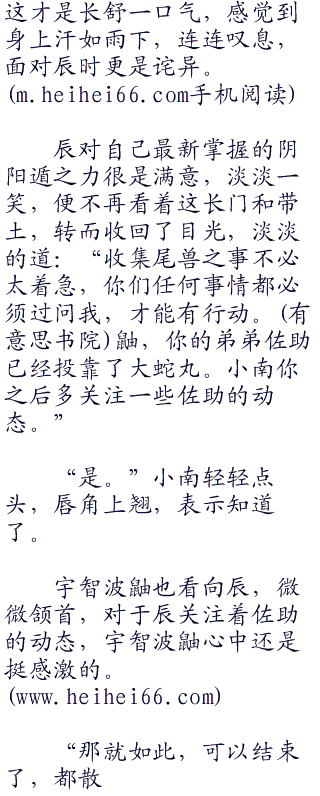 这才是长舒一口气，感觉到
身上汗如雨下，连连叹息，
面对辰时更是诧异。
(m.heihei66.com手机阅读)
辰对自己最新掌握的阴
阳遁之力很是满意，淡淡一
笑，便不再看着这长门和带
土，转而收回了目光，淡淡
的道：“收集尾兽之事不必
太着急，你们任何事情都必
须过问我，才能有行动。(有
意思书院)鼬，你的弟弟佐助
已经投靠了大蛇丸。小南你
之后多关注一些佐助的动
态。”
“是。”小南轻轻点
头，唇角上翘，表示知道
了。
宇智波鼬也看向辰，微
微颔首，对于辰关注着佐助
的动态，宇智波鼬心中还是
挺感激的。
(www.heihei66.com)
“那就如此，可以结束
了，都散